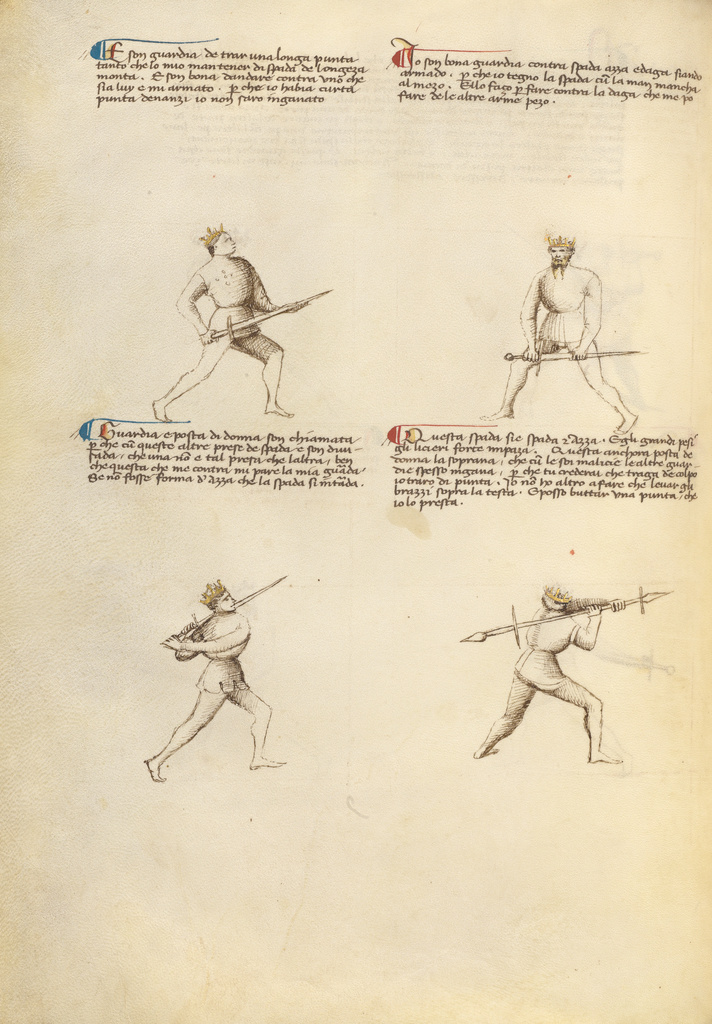 E son guardia de trar una longa punta
tanto che lo mio mantener di spada de longeza
monta. E son bona dandare contra uno che
sia luy e mi armato. p che io habia curta
punta denanzi io non saro inganato
Io son bona guardia contra spada azza e daga siando
armado. p che io tegno la spada cū la man mancha
al mezo. E llo fazo p fare contra la daga che me po
fare de le altre arme pezo.
Guardia e posta di donna son chiamata
p che cū queste altre prese de spada e son diui
sada, che una nō e tal presa che laltra, ben
che questa che me contra mi pare la mia guarda
Se nō fosse forma d azza che la spada si
Questa spada sie spada e Azza. E gli grandi pesi
gli liceri forte impaza. Questa anchora posta de
donna la soprana, che cū le soi malicie le altre guar-
die spesso ingana, p che tu crederai che traga de colpo
io traro di punta. Io nō ho altro a fare che leuar gli
brazzi sopra la testa. E posso buttar una punta che
io lo presta.